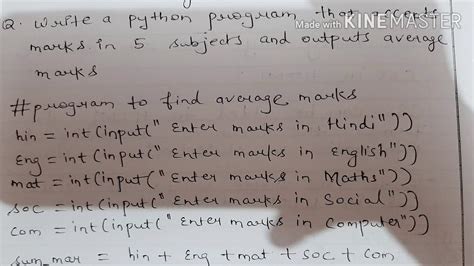 Q. Write a python program that accepts
Made with KINEMASTER
marks in 5 subjects and outputs average
marks
#program to find average marks
hin = int(input(" Enter marks in Hindi"))
Eng = int(input(" Enter marks in English"))
mat = int(input(" Enter marks in Maths"))
soc = int(input(" Enter marks in Social"))
com = int(input(" Enter marks in Computer"))
sum_mar = hin + Eng + mat + soc + com